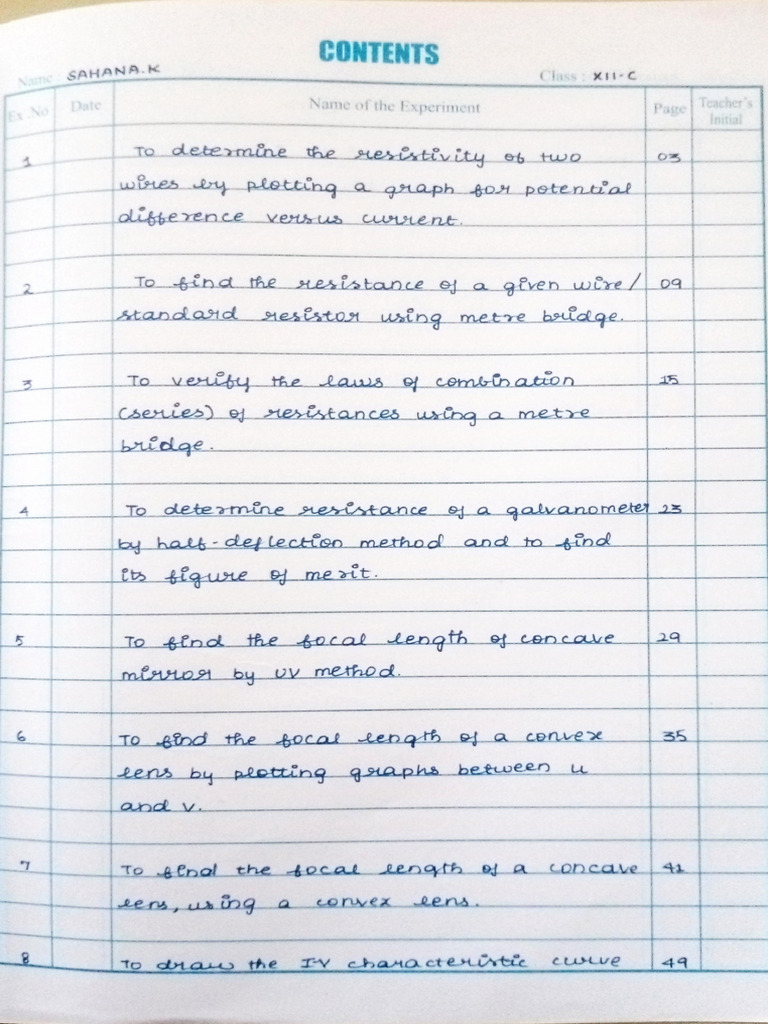 CONTENTS
Name : SAHANA.K Class : XII-C
Ex .No Date Name of the Experiment Page Teacher's Initial
1 To determine the resistivity of two 03
wires by plotting a graph for potential
difference versus current.
2 To find the resistance of a given wire / 09
standard resistor using metre bridge.
3 To verify the laws of combination 15
(series) of resistances using a metre
bridge.
4 To determine resistance of a galvanometer 23
by half-deflection method and to find
its figure of merit.
5 To find the focal length of concave 29
mirror by UV method.
6 To find the focal length of a convex 35
lens by plotting graphs between u
and v.
7 To find the focal length of a concave 41
lens, using a convex lens.
8 To draw the I-V characteristic curve 49